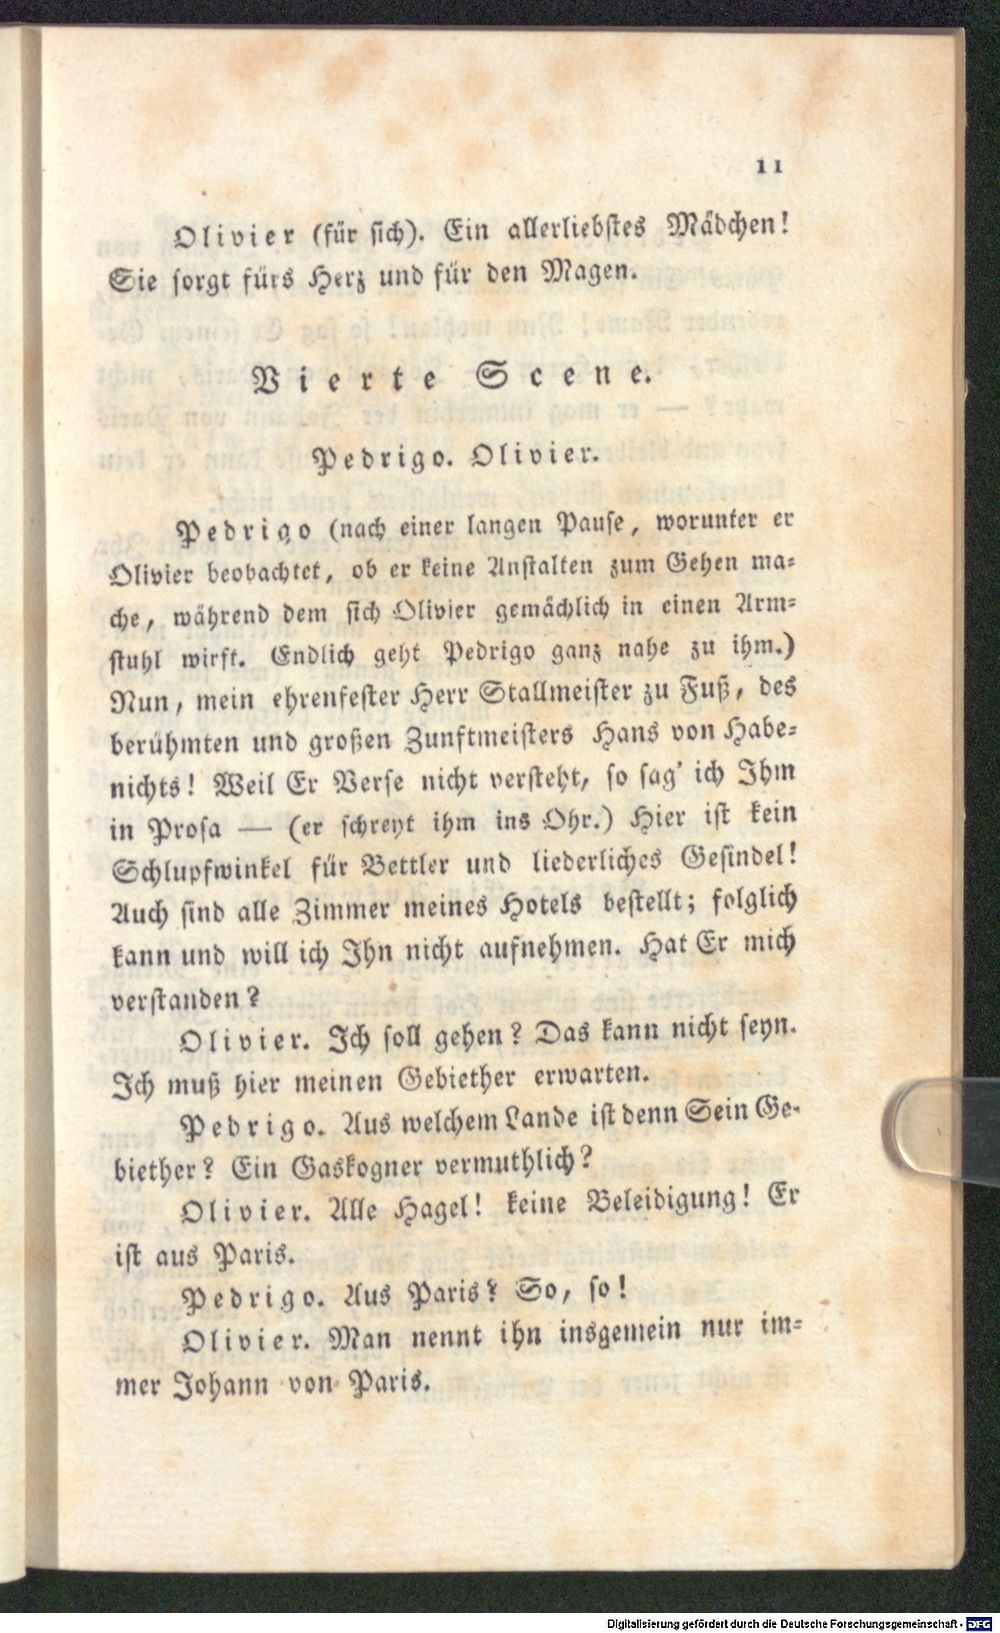 11
Olivier (für sich). Ein allerliebstes Mädchen!
Sie sorgt fürs Herz und für den Magen.
Vierte Scene.
Pedrigo. Olivier.
Pedrigo (nach einer langen Pause, worunter er
Olivier beobachtet, ob er keine Anstalten zum Gehen ma=
che, während dem sich Olivier gemächlich in einen Arm=
stuhl wirft. Endlich geht Pedrigo ganz nahe zu ihm.)
Nun, mein ehrenfester Herr Stallmeister zu Fuß, des
berühmten und großen Zunftmeisters Hans von Habe=
nichts! Weil Er Verse nicht versteht, so sag' ich Ihm
in Prosa — (er schreyt ihm ins Ohr.) Hier ist kein
Schlupfwinkel für Bettler und liederliches Gesindel!
Auch sind alle Zimmer meines Hotels bestellt; folglich
kann und will ich Ihn nicht aufnehmen. Hat Er mich
verstanden?
Olivier. Ich soll gehen? Das kann nicht seyn.
Ich muß hier meinen Gebiether erwarten.
Pedrigo. Aus welchem Lande ist denn Sein Ge=
biether? Ein Gaskogner vermuthlich?
Olivier. Alle Hagel! keine Beleidigung! Er
ist aus Paris.
Pedrigo. Aus Paris? So, so!
Olivier. Man nennt ihn insgemein nur im=
mer Johann von Paris.
Digitalisierung gefördert durch die Deutsche Forschungsgemeinschaft - DFG